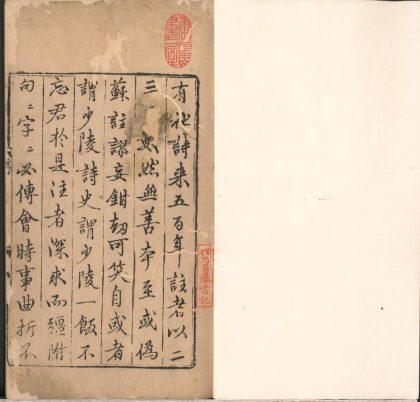 有杜詩来五百年註者以二
三數然無善本至或偽
蘇註謬妄鉗刼可笑自或者
謂少陵詩史謂少陵一飯不
忘君於是注者深求而彊附
句〻字〻必傅會時事曲折不